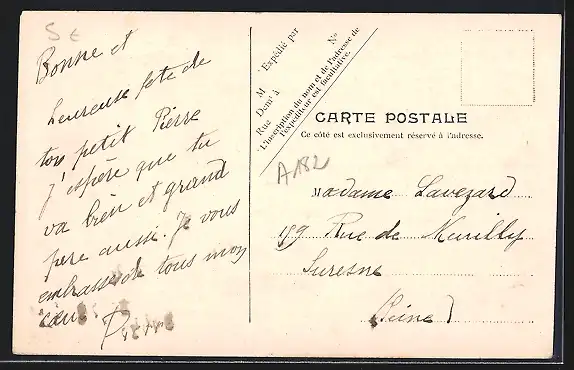 5 €
Bonne et
heureuse fête de
ton petit Pierre
j'espère que tu
va bien et grand
père aussi. Je vous
embrasse de tous mon
cœur Pierre
Expédié par
M
Demt à
Rue
No
L'inscription du nom et de l'adresse de
l'expéditeur est facultative.
CARTE POSTALE
Ce côté est exclusivement réservé à l'adresse.
A182
Madame Lavezard
159 Rue de Neuilly
Suresne
(Seine)